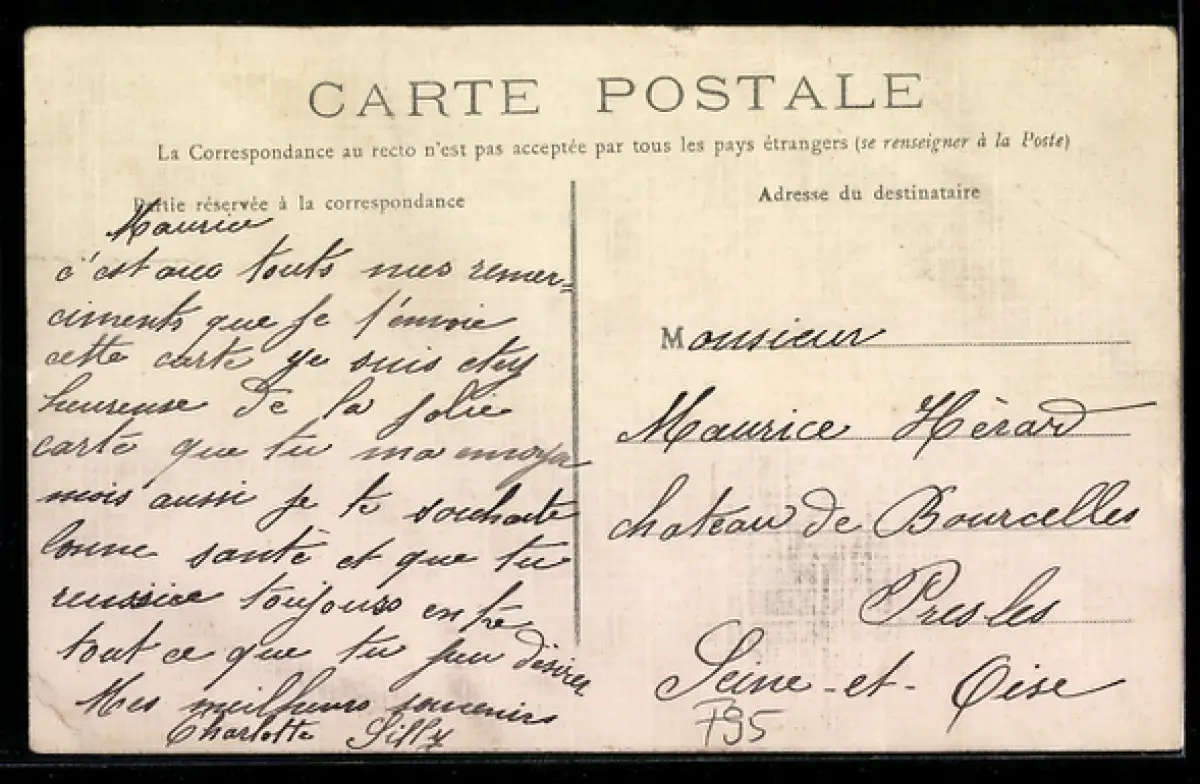 CARTE POSTALE
La Correspondance au recto n'est pas acceptée par tous les pays étrangers (se renseigner à la Poste)
Partie réservée à la correspondance
Maurice
c'est avec touts mes remer=
ciments que je t'envoie
cette carte ye suis
heureuse de la jolie
carte que tu ma envoya
mois aussi je te souhaite
bonne santé et que tu
reussice toujours
tout ce que tu peu désirer
Mes meilheurs souvenirs
Charlotte Silly
Adresse du destinataire
Monsieur
Maurice Hèrard
chateau de Bourcelles
Presles
Seine-et-Oise
795